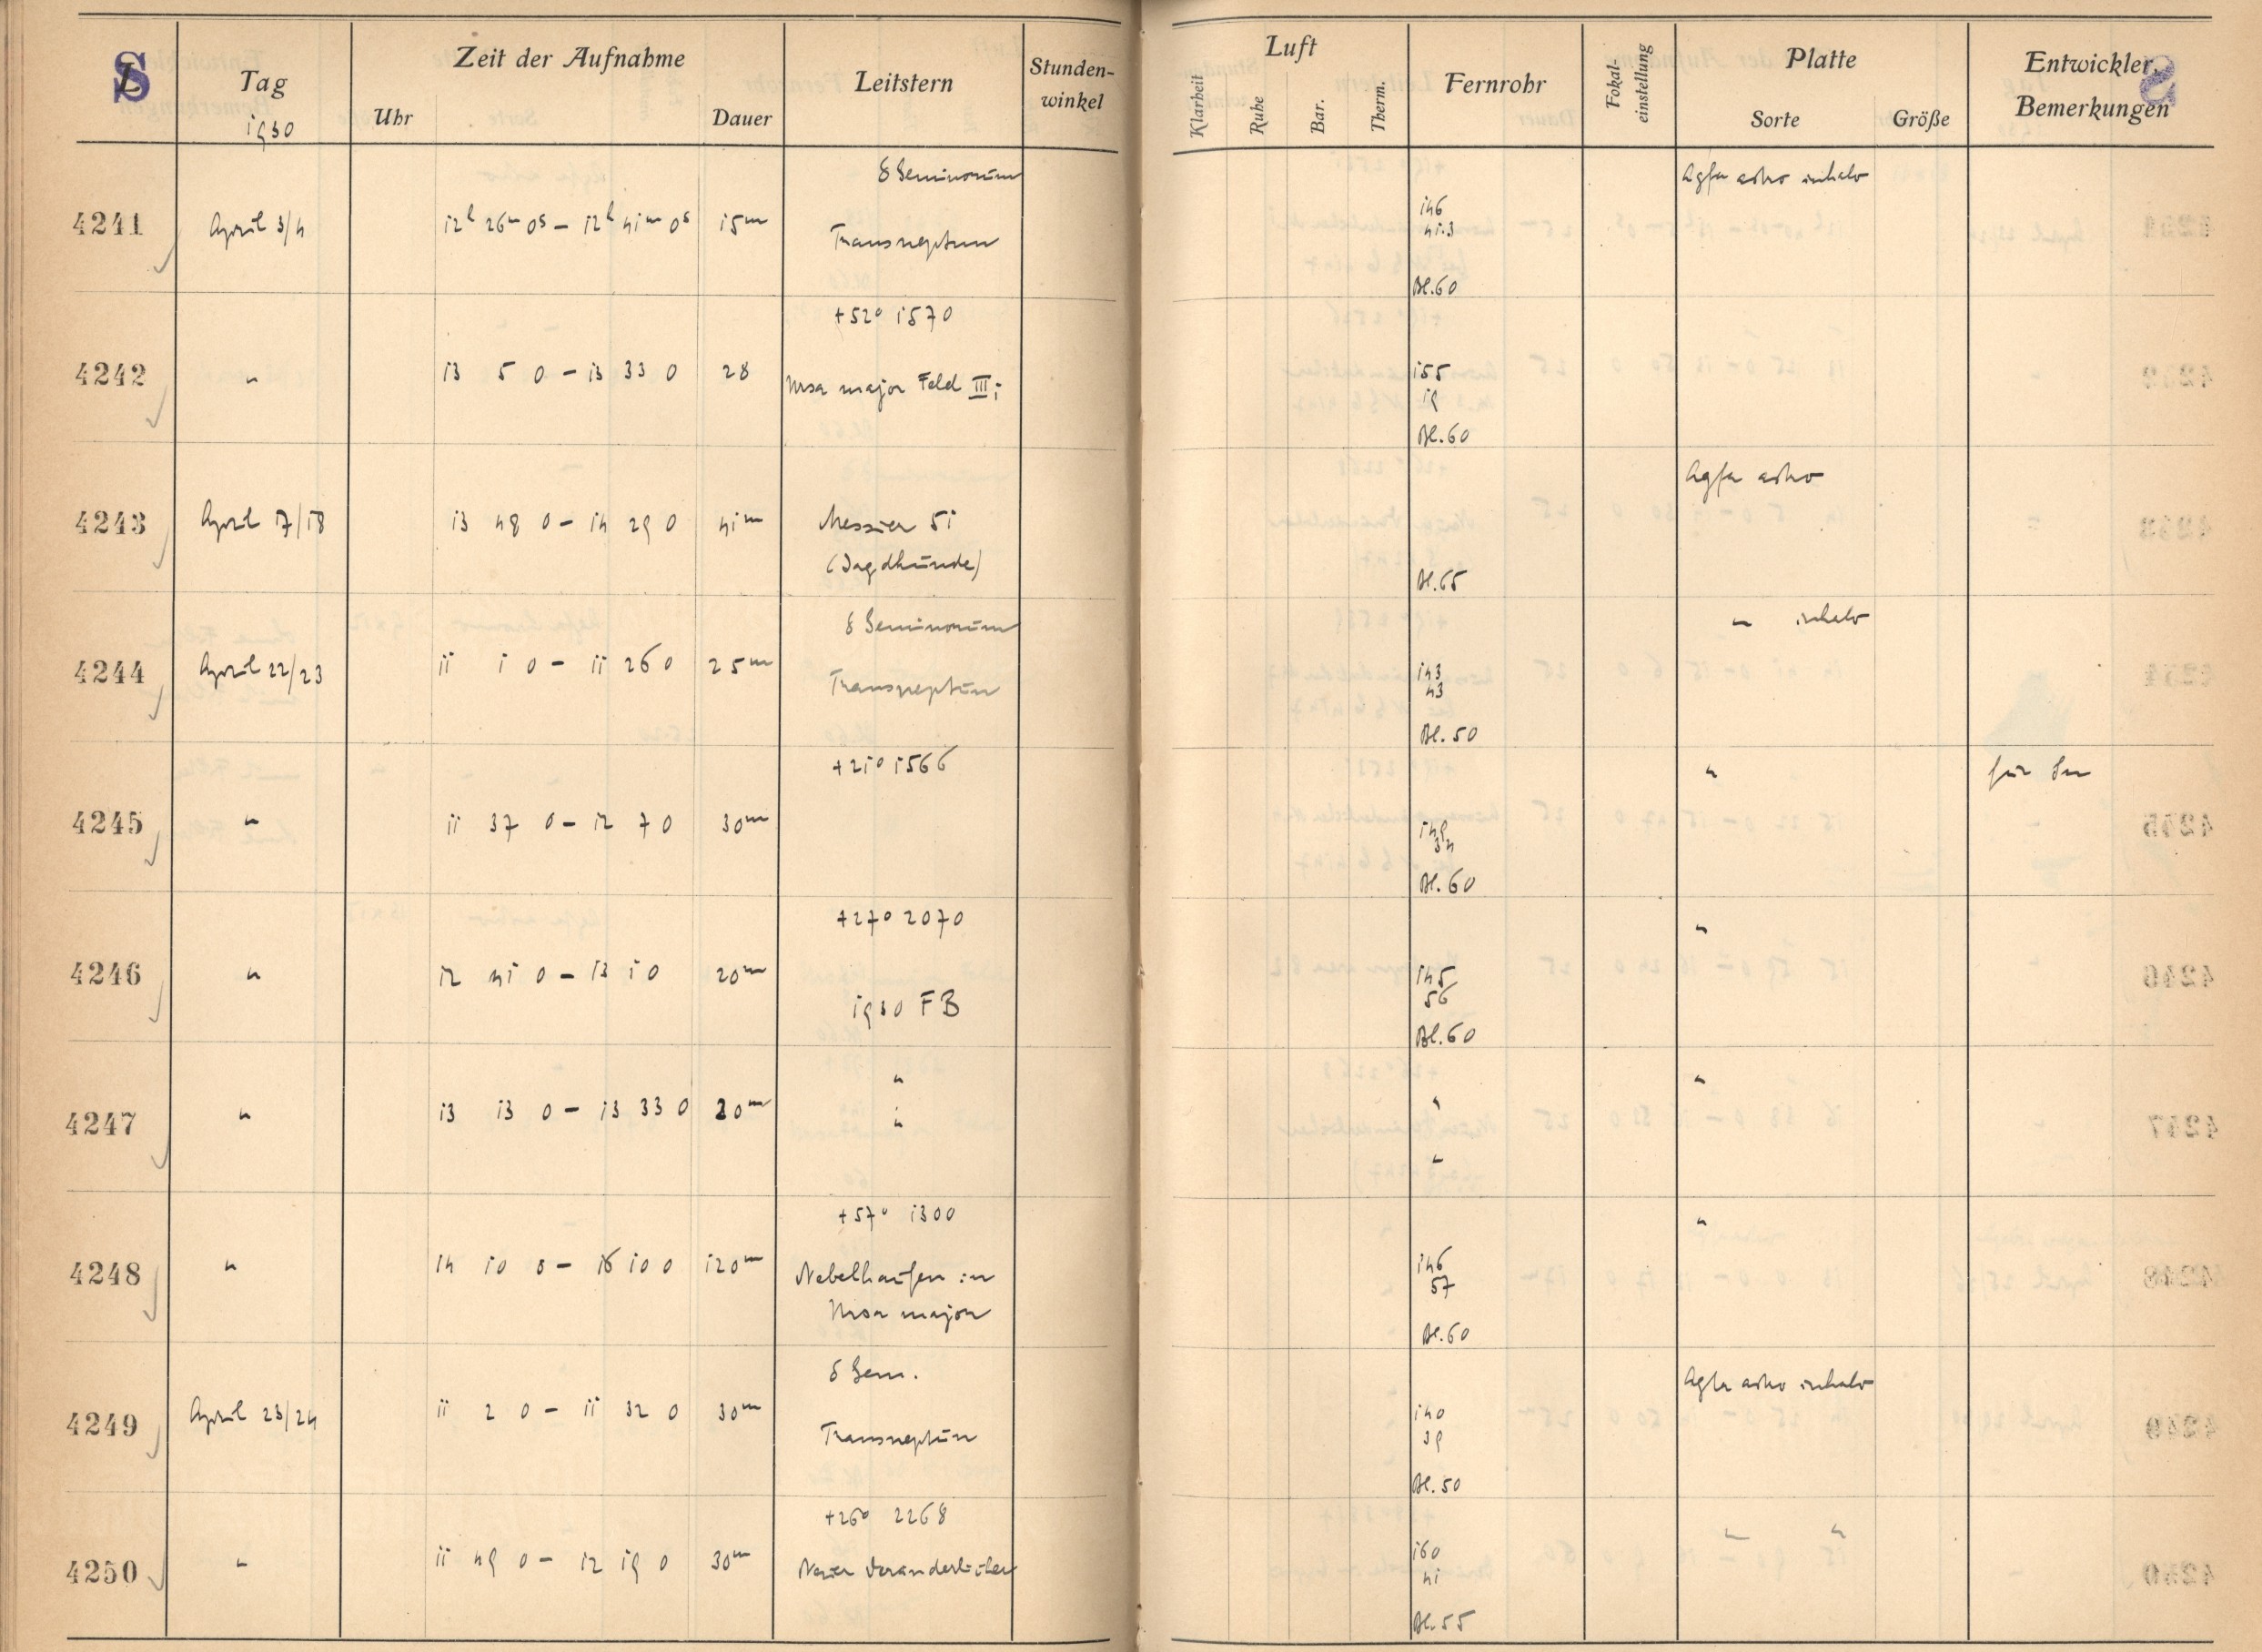 S
Tag
1930
Zeit der Aufnahme
Uhr
Dauer
Leitstern
Stunden-
winkel
Luft
Klarheit
Ruhe
Bar.
Therm.
Fernrohr
Fokal-
einstellung
Platte
Sorte
Größe
Entwickler,
Bemerkungen
4241 April 3/4 12h 26m 0s – 12h 41m 0s 15m
δ Geminorum
Transneptun
146
41.3
Bl. 60
Agfa astro inhalo
4242 " 13 5 0 – 13 33 0 28
+52° 1570
Ursa major Feld III;
155
19
Bl. 60
4243 April 17/18 13 48 0 – 14 29 0 41m
Messier 51
(Jagdhunde)
Bl. 65
Agfa astro
4244 April 22/23 11 1 0 – 11 26 0 25m
δ Geminorum
Transneptun
143
43
Bl. 50
" inhalo
4245 " 11 37 0 – 12 7 0 30m
+21° 1566
149
34
Bl. 60
"
für
4246 " 12 41 0 – 13 1 0 20m
+27° 2070
1930 FB
145
56
Bl. 60
"
4247 " 13 13 0 – 13 33 0 20m
"
"
"
"
"
4248 " 14 10 0 – 16 10 0 120m
+57° 1300
Nebelhaufen in
Ursa major
146
57
Bl. 60
"
4249 April 23/24 11 2 0 – 11 32 0 30m
δ Gem.
Transneptun
140
39
Bl. 50
Agfa astro inhalo
4250 " 11 49 0 – 12 19 0 30m
+26° 2268
Neuer Veränderlicher
160
41
Bl. 55
" "